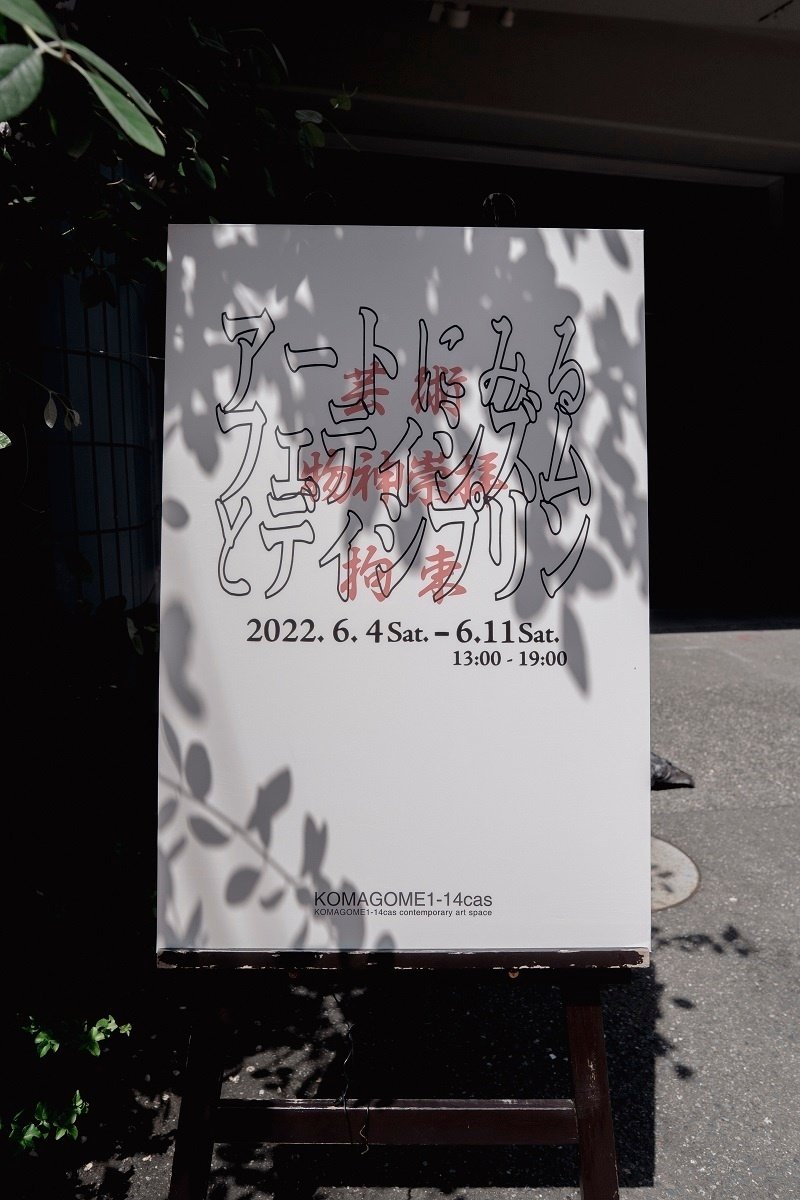 アートにみる
芸術
フェティシズム
物神崇拝
とディシプリン
拘束
2022. 6. 4 Sat. – 6.11 Sat.
13:00 - 19:00
KOMAGOME1-14cas
KOMAGOME1-14cas contemporary art space